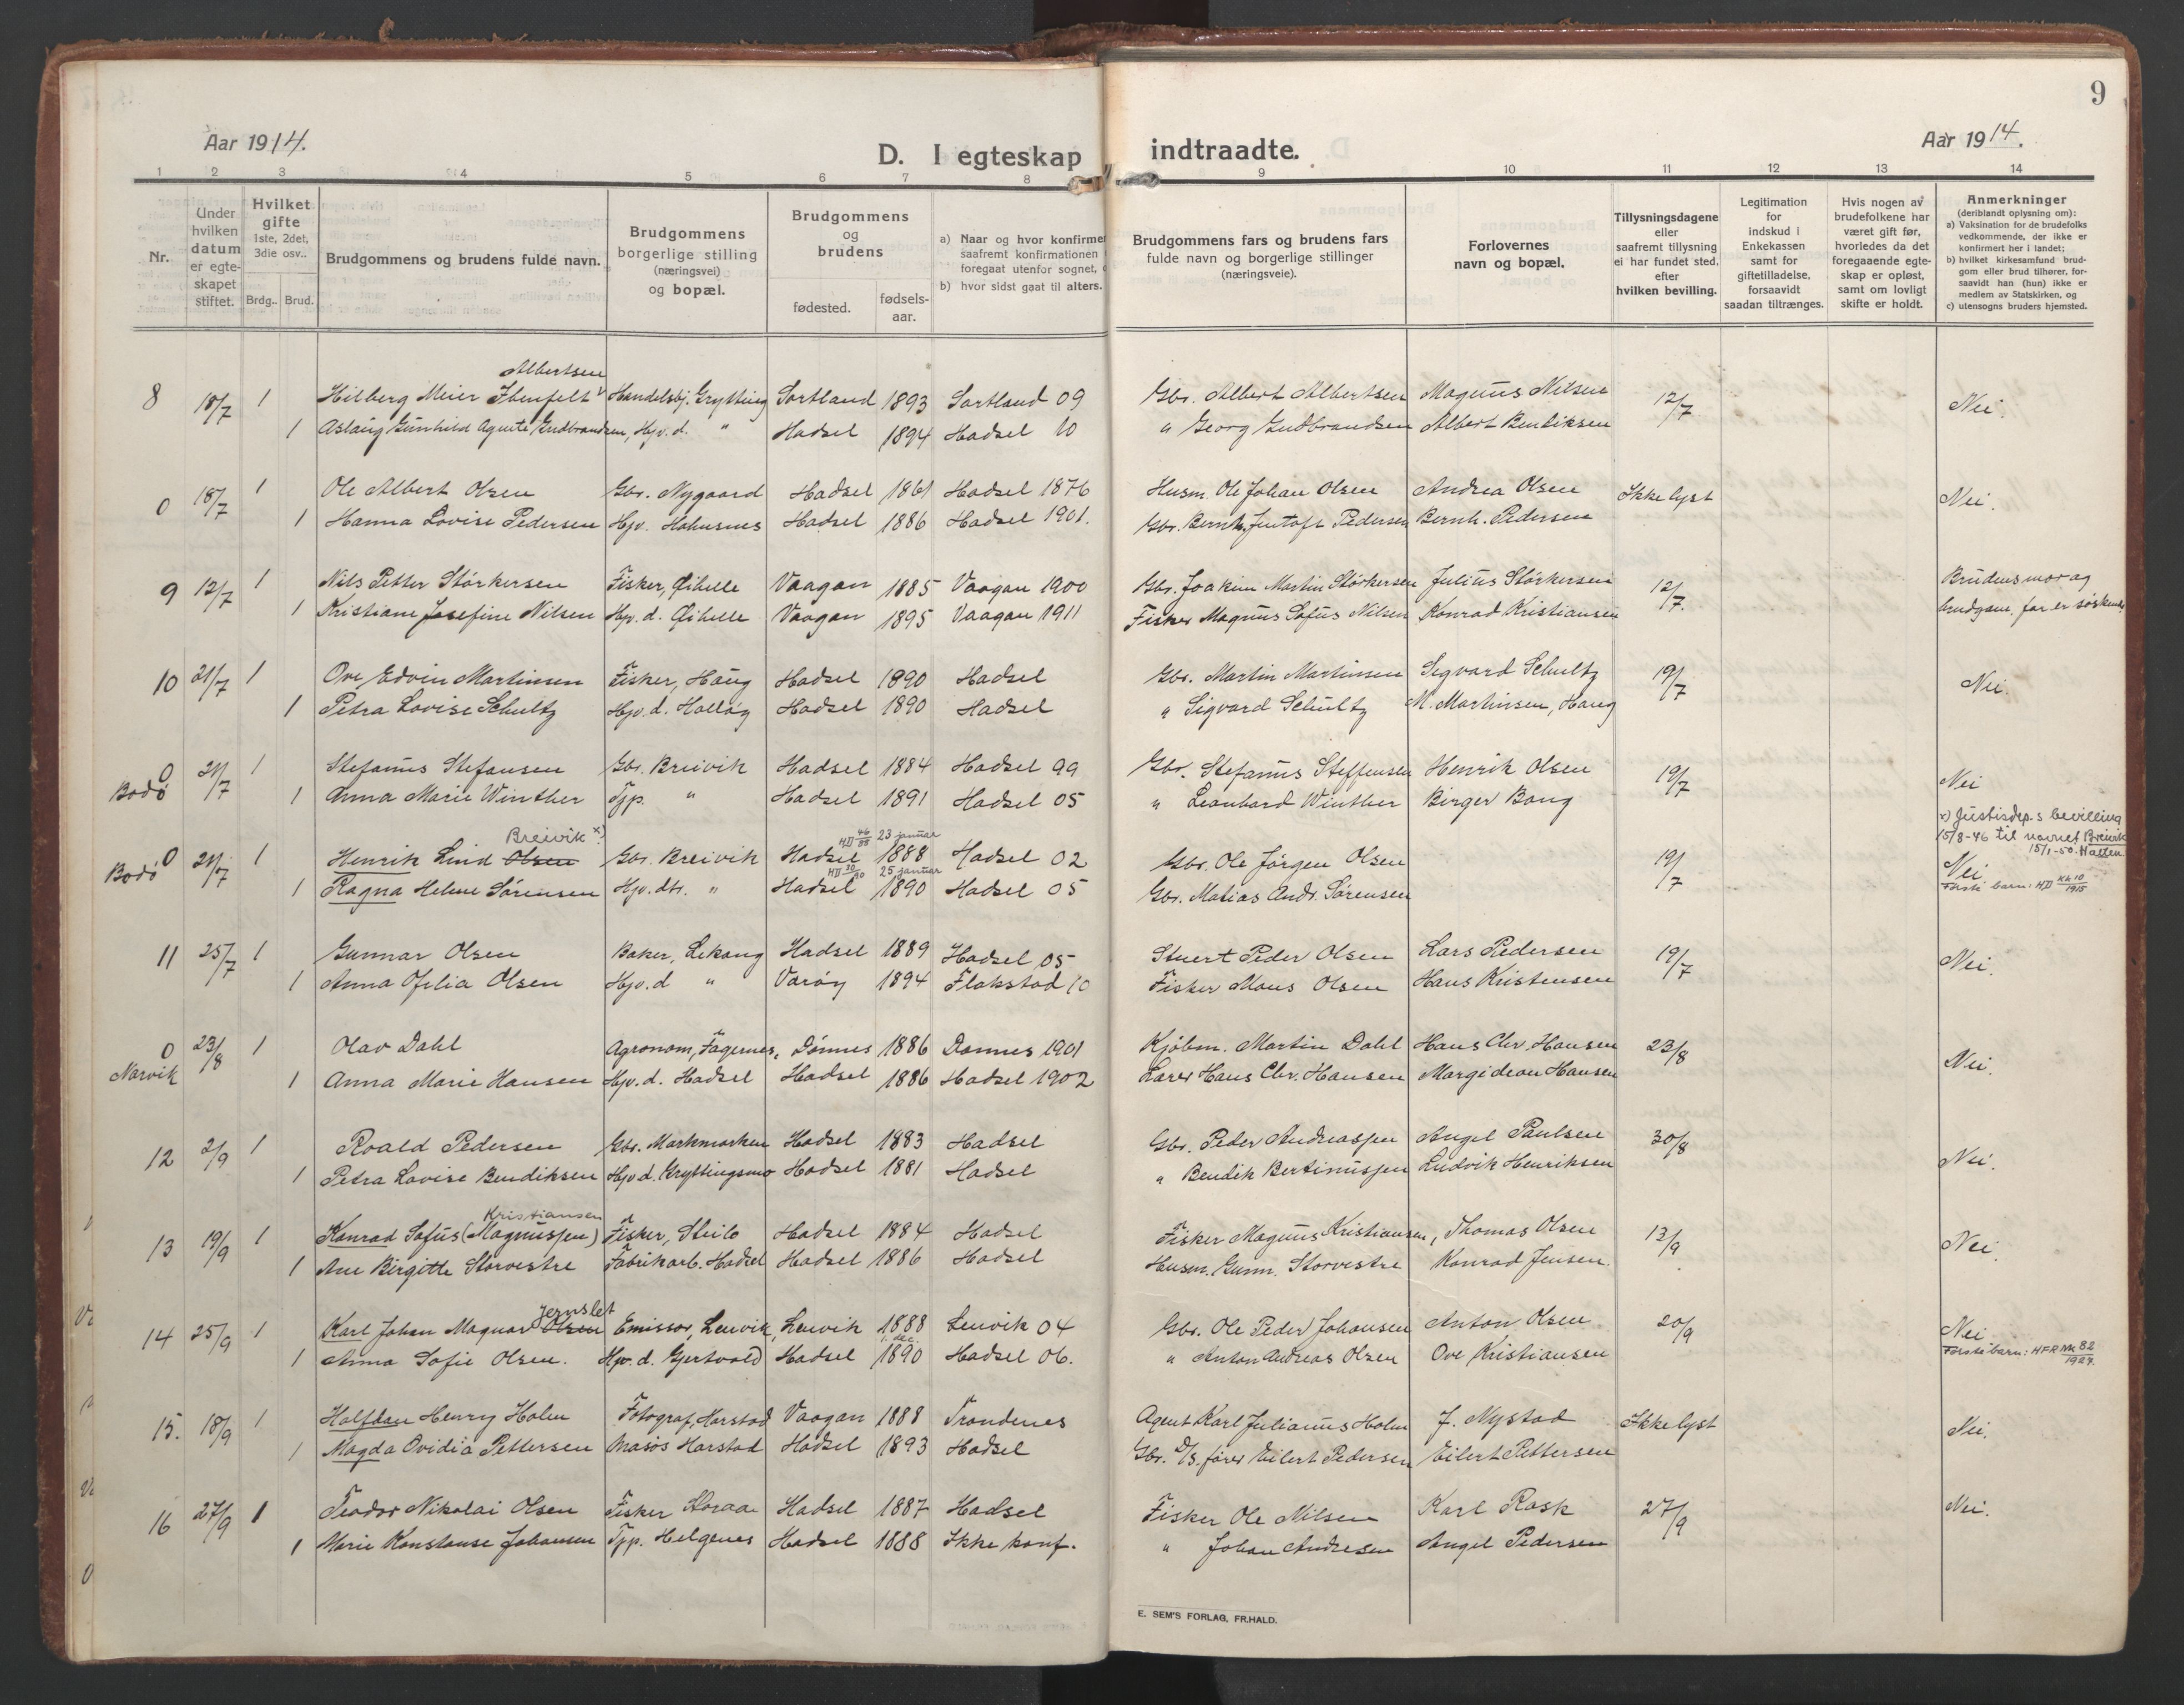 9
Aar 1914.
D. I egteskap indtraadte.
Aar 1914.
1 2 3 4 5 6 7 8 9 10 11 12 13 14
Nr.
Under hvilken datum er egteskapet stiftet.
Hvilket gifte 1ste, 2det, 3die osv..
Brdg.. Brud.
Brudgommens og brudens fulde navn.
Brudgommens borgerlige stilling (næringsvei) og bopæl.
Brudgommens og brudens
fødested.
fødsels-aar.
a) Naar og hvor konfirmer
saafremt konfirmationen
foregaat utenfor sognet,
b) hvor sidst gaat til alters.
Brudgommens fars og brudens fars
fulde navn og borgerlige stillinger
(næringsveie).
Forlovernes
navn og bopæl.
Tillysningsdagene
eller
saafremt tillysning
ei har fundet sted,
efter
hvilken bevilling.
Legitimation
for
indskud i
Enkekassen
samt for
giftetilladelse,
forsaavidt
saadan tiltrænges.
Hvis nogen av
brudefolkene har
været gift før,
hvorledes da det
foregaaende egte-
skap er opløst,
samt om lovligt
skifte er holdt.
Anmerkninger
(deriblandt oplysning om):
a) Vaksination for de brudefolks
vedkommende, der ikke er
konfirmert her i landet;
b) hvilket kirkesamfund brud-
gom eller brud tilhører, for-
saavidt han (hun) ikke er
medlem av Statskirken, og
c) utensogns bruders hjemsted.
Albertsen
8 18/7 1 Hilberg Meier Ibenfelt Handelsbj. Grytting Sortland 1893 Sortland 09 Gbr. Albert Albertsen Magnus Nilsen 12/7 Nei.
1 Aslaug Gunhild Agnete Gudbrandsen, Hjv. d. " Hadsel 1894 Hadsel 10 " Georg Gudbrandsen Albert Bendiksen
0 18/7 1 Ole Albert Olsen Gbr. Nygaard Hadsel 1861 Hadsel 1876 Husm. Ole Johan Olsen Andrea Olsen Ikke lyst Nei.
1 Hanna Lovise Pedersen Hjv. Hahusnes Hadsel 1886 Hadsel 1901. Gbr. Bernh. Jentoft Pedersen Bernh. Pedersen
9 12/7 1 Nils Petter Störkersen Fisker, Qihelle Vaagan 1885 Vaagan 1900 Gbr. Joakim Martin Störkersen Julius Störkersen 12/7. Brudens mor og
1 Kristiane Josefine Nilsen Hjv. d. Qihelle Vaagan 1895 Vaagan 1911 Fisker Magnus Sofus Nilsen Konrad Kristiansen brudgom. far er söskende
10 21/7 1 Ove Edvin Martinsen Fisker, Haug Hadsel 1890 Hadsel Gbr. Martin Martinsen Sigvard Schultz 19/7 Nei.
1 Petra Lovise Schultz Hjv. d. Holløg Hadsel 1890 Hadsel " Sigvard Schultz M. Martinsen, Haug
0 21/7 1 Stefanus Stefansen Gbr. Breivik Hadsel 1884 Hadsel 99 Gbr. Stefanus Steffensen Henrik Olsen 19/7 Nei
Bodö 1 Anna Marie Winther Tjp. " Hadsel 1891 Hadsel 05 " Leonhard Winther Birger Bang
x) Justisdep.s bevilling
15/8-46 til navnet Breivik
15/1-50. Hatten
Breivik x) HD 46/88 23 januar
0 21/7 1 Henrik Lind Olsen Gbr. Breivik Hadsel 1888 Hadsel 02 Gbr. Ole Jörgen Olsen 19/7 Nei
HD 10/90 25 januar
Bodö 1 Ragna Helene Sörensen Hjv. dtr. " Hadsel 1890 Hadsel 05 Gbr. Matias Andr. Sörensen Første barn: HD kk 10/1915
11 25/7 1 Gunnar Olsen Baker, Lekang Hadsel 1889 Hadsel 05 Stuert Peder Olsen Lars Pedersen 19/7 Nei.
1 Anna Ofelia Olsen Hjv. d " Varöy 1894 Flakstad 10 Fisker Mons Olsen Hans Kristensen
0 23/8 1 Olav Dahl Agronom, Fagernes, Dönnes 1886 Dönnes 1901 Kjöbm. Martin Dahl Hans Chr. Hansen 23/8 Nei.
Narvik 1 Anna Marie Hansen Hjv. d. Hadsel Hadsel 1886 Hadsel 1902 Lærer Hans Chr. Hansen Margidean Hansen
12 2/9 1 Roald Pedersen Gbr. Markmarken Hadsel 1883 Hadsel Gbr. Peder Andreassen Angel Paulsen 30/8 Nei.
1 Petra Lovise Bendiksen Hjv. d. Gryttingsmo Hadsel 1881 Hadsel " Bendik Bertinussen Ludvik Henriksen
Kristiansen
13 19/9 1 Konrad Sofus (Magnussen) Fisker, Steilo Hadsel 1884 Hadsel Fisker Magnus Kristiansen, Thomas Olsen 13/9 Nei.
1 Ane Birgitte Storvestre Fabrikarb. Hadsel Hadsel 1886 Hadsel Husm. Gunn. Storvestre Konrad Jensen.
Jernslet
14 25/9 1 Karl Johan Magnar Olsen Emissær, Lenvik, Lenvik 1888 Lenvik 04 Gbr. Ole Peder Johansen Anton Olsen 20/9 Nei
1. dec.
1 Anna Sofie Olsen. Hjv. d. Gjertvold Hadsel 1890 Hadsel 06. " Anton Andreas Olsen Ove Kristiansen Første barn: HFR Nk 82/1927.
15. 18/9 1 Halfdan Henry Holm Fotograf, Harstad Vaagan 1888 Trondenes Agent Karl Julianus Holm J. Nystad Ikke lyst Nei.
1 Magda Ovidia Pettersen Masøs Harstad Hadsel 1893 Hadsel Gbr. D/S. fører Eilert Pedersen Eilert Pettersen
16 27/9 1 Teodor Nikolai Olsen Fisker Storaa Hadsel 1887 Hadsel Fisker Ole Nilsen Karl Rask 27/9 Nei.
1 Marie Konstanse Johansen Tjp. Helgenes Hadsel 1888 Ikke konf. " Johan Andresen Angel Pedersen
E. SEM'S FORLAG, FR.HALD.